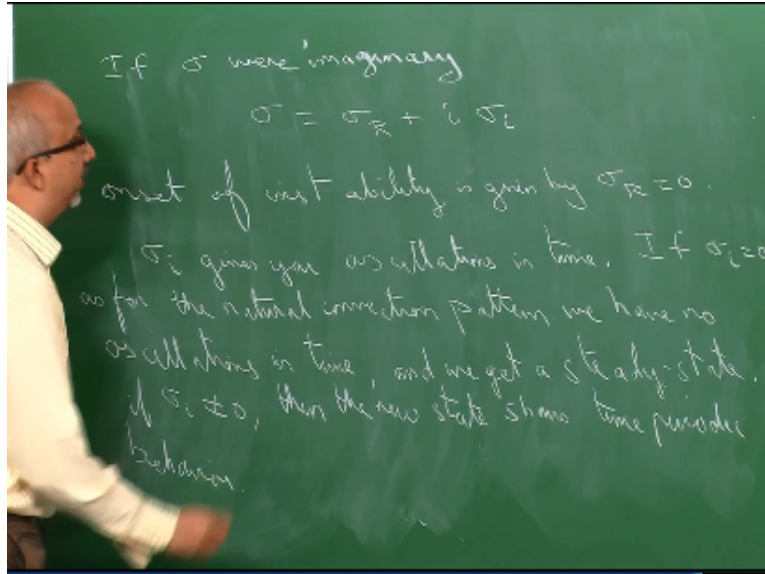 If σ were imaginary
σ = σ_R + i σ_i
onset of instability is given by σ_R = 0.
σ_i gives you oscillations in time. If σ_i = 0
as for the natural convection pattern we have no
oscillations in time, and we get a steady-state.
if σ_i ≠ 0, then the new state shows time periodic
behavior.